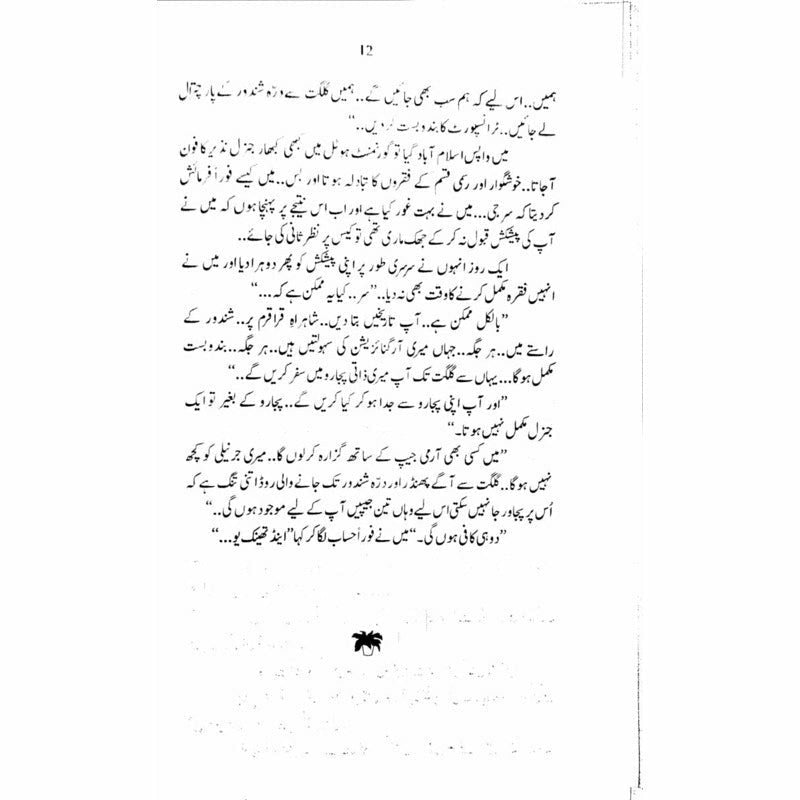 12
ہمیں..اس لیے کہ ہم سب بھی جائیں گے..ہمیں گلگت سے درّہ شندور کے پار چترال
لے جائیں..ٹرانسپورٹ کا بندوبست کر دیں..“
میں واپس اسلام آباد گیا تو گورنمنٹ ہوسٹل میں کبھی کبھار جنرل نذیر کا فون
آ جاتا..خوشگوار اور رسمی قسم کے فقروں کا تبادلہ ہوتا اور بس..میں کیسے فوراً فرمائش
کر دیتا کہ سر جی...میں نے بہت غور کیا ہے اور اب اس نتیجے پر پہنچا ہوں کہ میں نے
آپ کی پیشکش قبول نہ کر کے جھک ماری تھی تو کیس پر نظر ثانی کی جائے..
ایک روز انہوں نے سرسری طور پر اپنی پیشکش کو پھر دوہرا دیا اور میں نے
انہیں فقرہ مکمل کرنے کا وقت بھی نہ دیا..”سر..کیا یہ ممکن ہے کہ...“
”بالکل ممکن ہے..آپ تاریخیں بتا دیں..شاہراہِ قراقرم پر..شندور کے
راستے میں..ہر جگہ..جہاں میری آرگنائزیشن کی سہولتیں ہیں..ہر جگہ..بندوبست
مکمل ہو گا...یہاں سے گلگت تک آپ میری ذاتی پجارو میں سفر کریں گے..“
”اور آپ اپنی پجارو سے جدا ہو کر کیا کریں گے..پجارو کے بغیر تو ایک
جنرل مکمل نہیں ہوتا۔“
”میں کسی بھی آرمی جیپ کے ساتھ گزارہ کر لوں گا..میری جرنیلی کو کچھ
نہیں ہو گا..گلگت سے آگے پھنڈر اور درّہ شندور تک جانے والی روڈ اتنی تنگ ہے کہ
اُس پر پجاور جا نہیں سکتی اس لیے وہاں تین جیپیں آپ کے لیے موجود ہوں گی..“
”دو ہی کافی ہوں گی۔“ میں نے فوراً حساب لگا کر کہا ”اینڈ تھینک یو...“